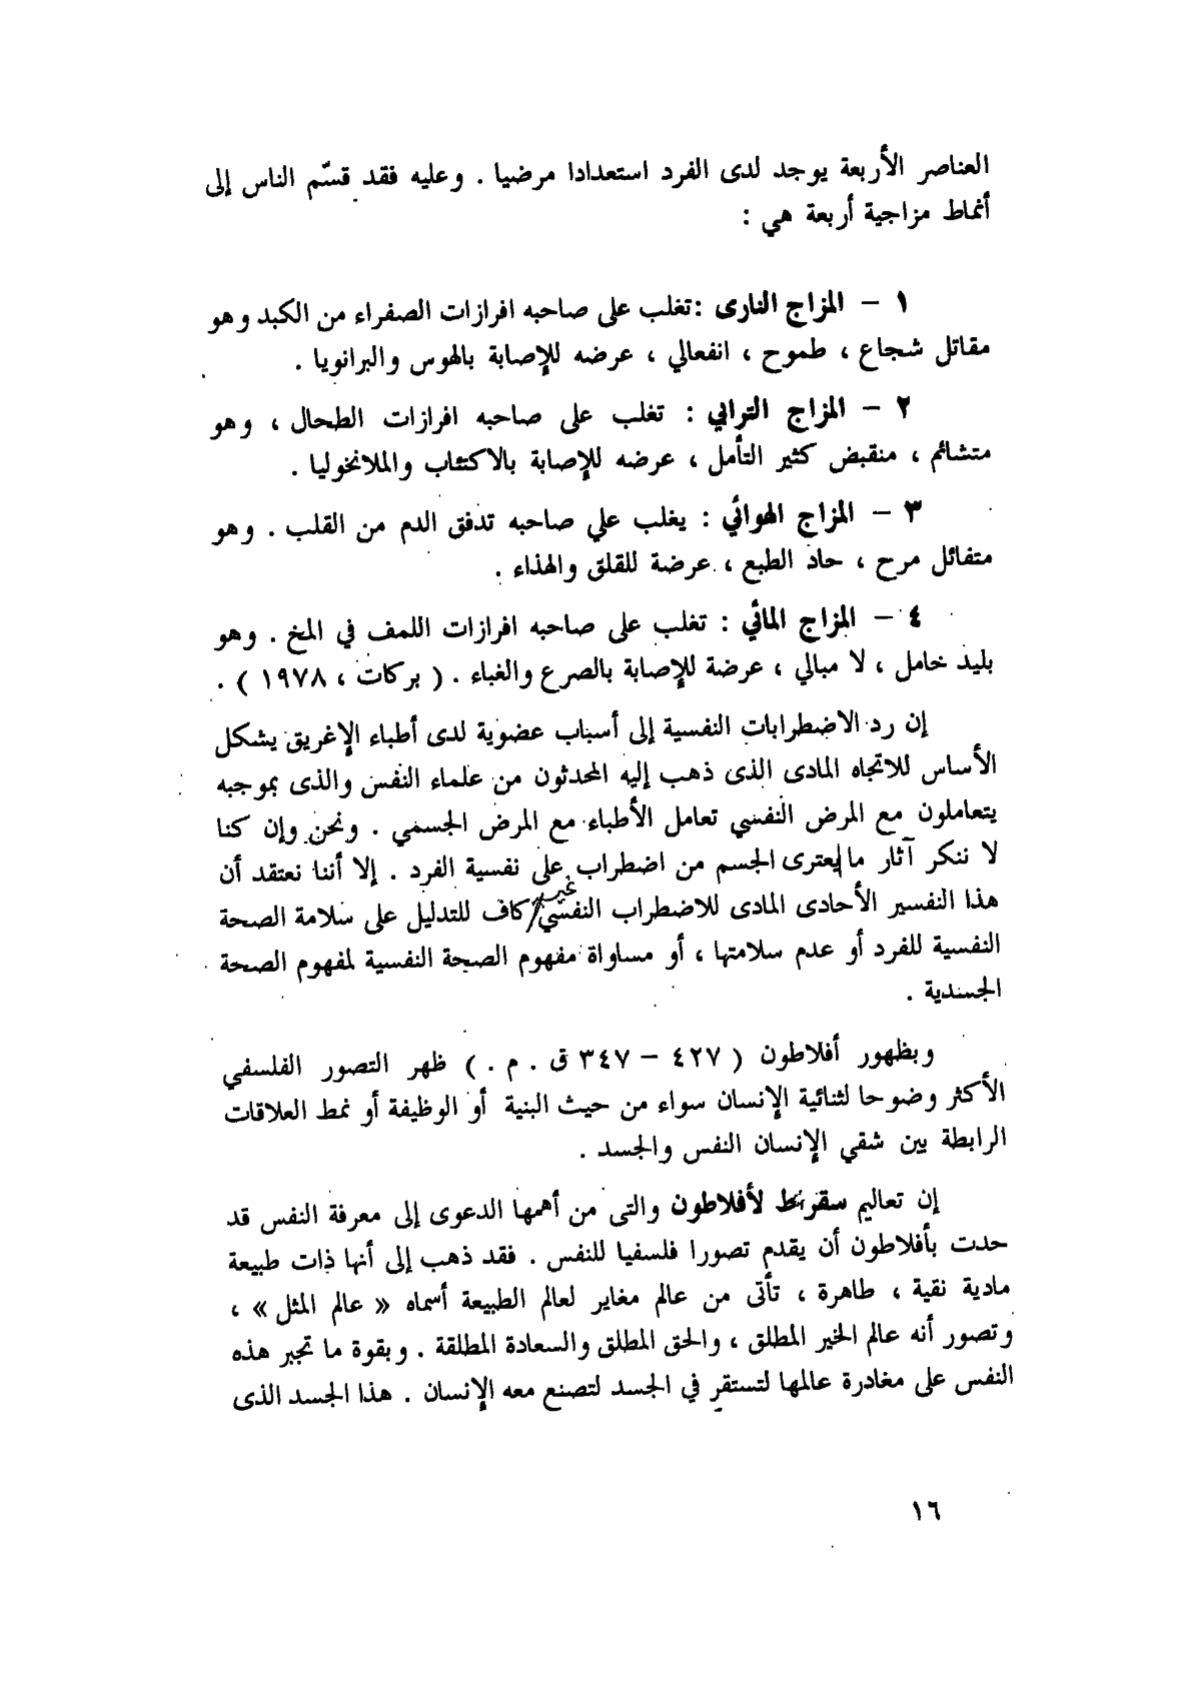 العناصر الأربعة يوجد لدى الفرد استعدادا مرضيا . وعليه فقد قسّم الناس إلى
أنماط مزاجية أربعة هي :
١ – المزاج النارى : تغلب على صاحبه افرازات الصفراء من الكبد وهو
مقاتل شجاع ، طموح ، انفعالي ، عرضه للإصابة بالهوس والبرانويا .
٢ – المزاج الترابي : تغلب على صاحبه افرازات الطحال ، وهو
متشائم ، منقبض كثير التأمل ، عرضه للإصابة بالاكتئاب والملانخوليا .
٣ – المزاج الهوائي : يغلب علي صاحبه تدفق الدم من القلب . وهو
متفائل مرح ، حاد الطبع ، عرضة للقلق والهذاء .
٤ – المزاج المائي : تغلب على صاحبه افرازات اللمف في المخ . وهو
بليد خامل ، لا مبالي ، عرضة للإصابة بالصرع والغباء . ( بركات ، ١٩٧٨ ) .
إن رد الاضطرابات النفسية إلى أسباب عضوية لدى أطباء الإغريق يشكل
الأساس للاتجاه المادى الذى ذهب إليه المحدثون من علماء النفس والذى بموجبه
يتعاملون مع المرض النفسي تعامل الأطباء مع المرض الجسمي . ونحن وإن كنا
لا ننكر آثار ما يعترى الجسم من اضطراب على نفسية الفرد . إلا أننا نعتقد أن
هذا النفسير الأحادى المادى للاضطراب النفسي غير كاف للتدليل على سلامة الصحة
النفسية للفرد أو عدم سلامتها ، أو مساواة مفهوم الصحة النفسية لمفهوم الصحة
الجسدية .
وبظهور أفلاطون ( ٤٢٧ – ٣٤٧ ق . م . ) ظهر التصور الفلسفي
الأكثر وضوحا لثنائية الإنسان سواء من حيث البنية أو الوظيفة أو نمط العلاقات
الرابطة بين شقي الإنسان النفس والجسد .
إن تعاليم سقراط لأفلاطون والتى من أهمها الدعوى إلى معرفة النفس قد
حدت بأفلاطون أن يقدم تصورا فلسفيا للنفس . فقد ذهب إلى أنها ذات طبيعة
مادية نقية ، طاهرة ، تأتى من عالم مغاير لعالم الطبيعة أسماه « عالم المثل » ،
وتصور أنه عالم الخير المطلق ، والحق المطلق والسعادة المطلقة . وبقوة ما تجبر هذه
النفس على مغادرة عالمها لتستقر في الجسد لتصنع معه الإنسان . هذا الجسد الذى
١٦